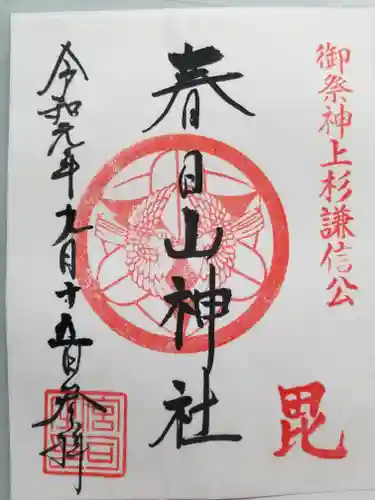 御祭神上杉謙信公
毘
春日山神社
令和元年九月十五日参拝